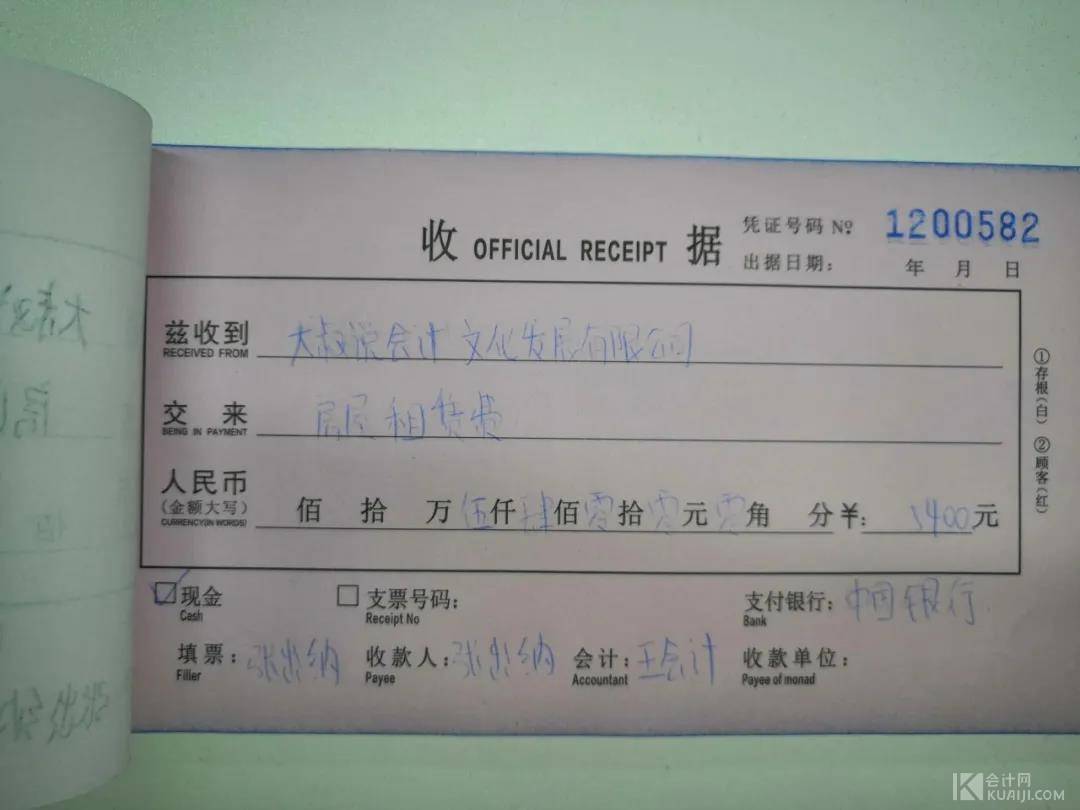 收 OFFICIAL RECEIPT 据
凭证号码 № 1200582
出据日期： 年 月 日
兹收到 大叔说会计文化发展有限公司
RECEIVED FROM
交来 房屋租赁费
BEING IN PAYMENT
人民币
(金额大写) 佰 拾 万 伍仟肆佰零拾零元零角 分 ¥: 5400元
CURRENCY(IN WORDS)
①存根(白) ②顾客(红)
☑现金 □支票号码： 支付银行：中国银行
Cash Receipt No Bank
填票：张出纳 收款人：张出纳 会计：王会计 收款单位：
Filler Payee Accountant Payee of monad
会计网
KUAIJI.COM